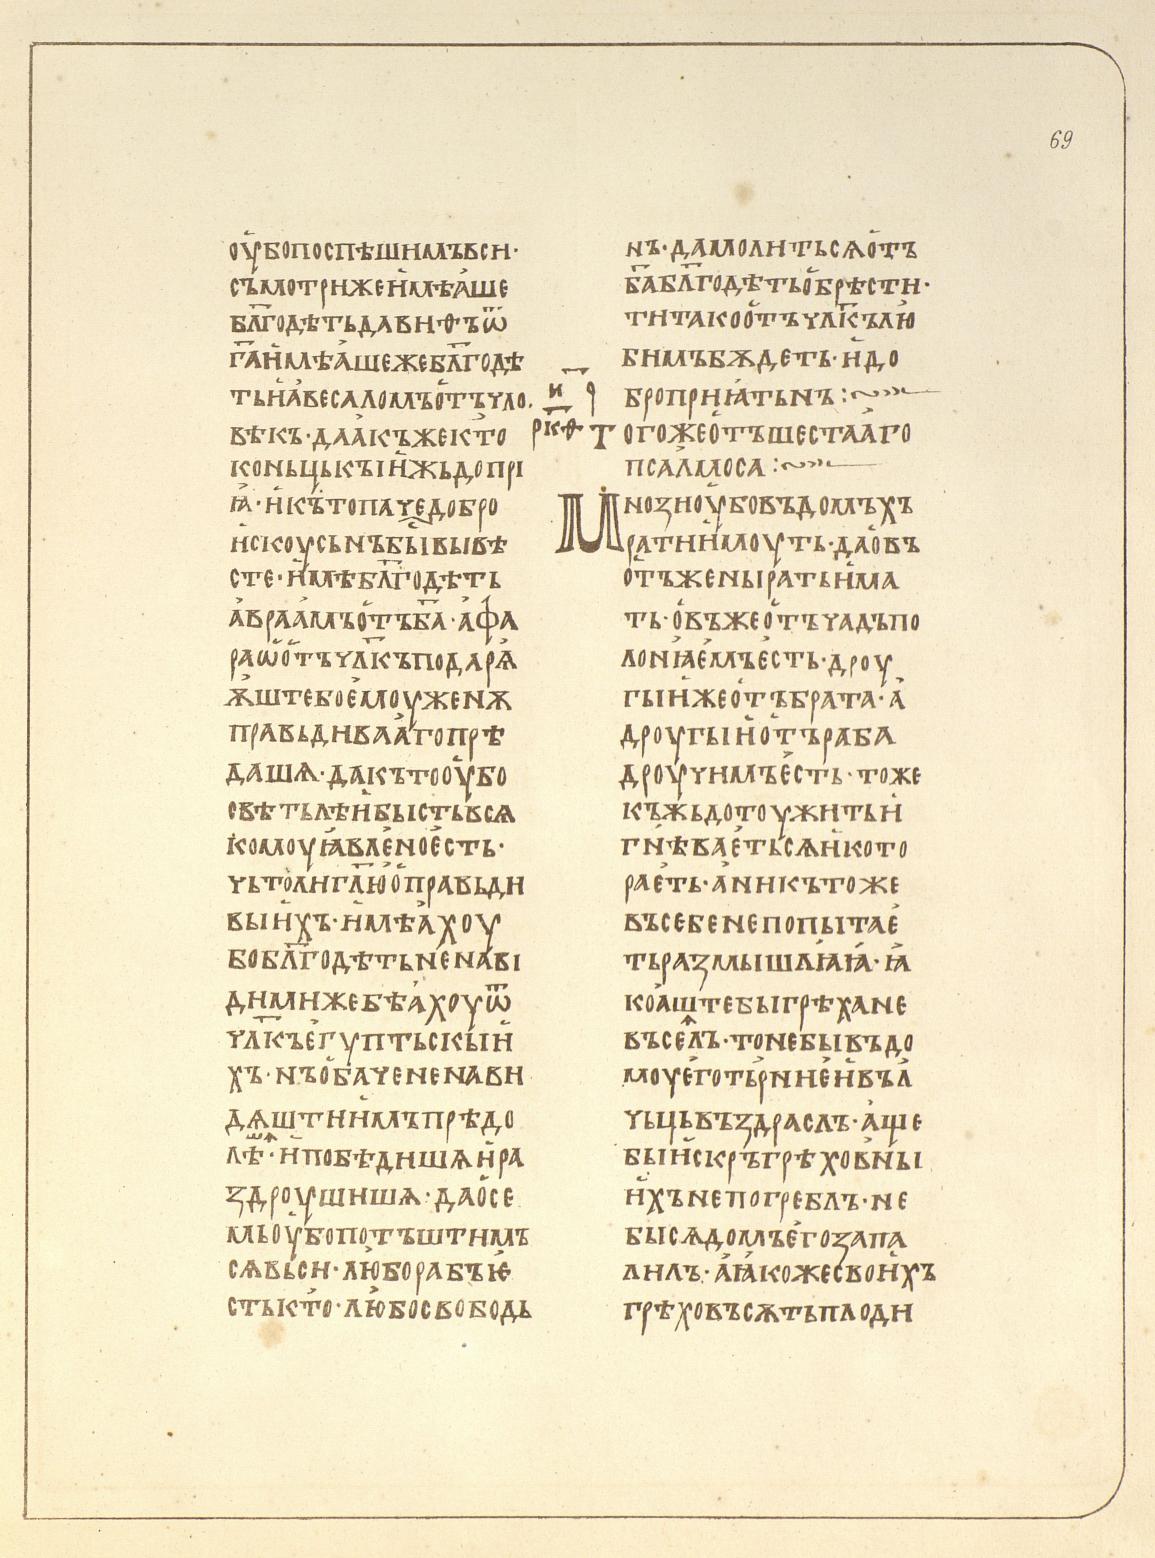 69
оу҆бопоспѣшимъвси·
съмотрижеи҆мѣа҆ше
бл҃годѣтьдавиѳъѿ
г҃аи҆мѣа҆шежебл҃годѣ
тьи҆а҆весаломъо҆тъчло
вѣкъ·даа҆къжекто
коньцькъіи҆жьдопрі
ꙗ·и҆къ҆топачедобро
и҆скоусьнъбы҆вывѣ
сте·и҆мѣбл҃годѣть
а҆враа҆мъо҆тъб҃а·а҆фа
раѡ҆о҆тъчл҃къподарѧ҆
ѫ҆штебое҆моуженѫ
правьдиваа҆гопрѣ
дашѧ·дакътооу҆бо
свѣтьлѣи҆бystьвсѧ
комоуꙗ҆вле҆ное҆сть·
чьтолиг҃лю҆о҆правьди
выи҆хъ·и҆мѣа҆хоу
бобл҃годѣтьне҆нави
димижебѣа҆хоуѿ
чл҃къе҆гуптьскыи҆
хъ·нъо҆бачененави
дѧштии҆мъпрѣдо
лѣшѧ·и҆побѣдишѧи҆ра
здроушишѧ·дао҆се
мьоу҆бопотъштимъ
сѧвьси·лю҆борабъѥ
стькто·лю҆босвободь
нъ·дамолитьсѧо҆тъ
б҃абл҃годѣтьо҆брѣсти·
титакоо҆тъчл҃кълю҆
бимъбѫдеть·и҆до
броприꙗ҆тьнъ:~
и҃
рк҃ѳ
тогожео҆тъшестаа҆го
пса҆лмоса:~
мнозиоу҆бовъдомъхъ
ратии҆моуть·дао҆въ
о҆тъженыратьи҆ма
ть·о҆въжео҆тъчадъпо
лониꙗе҆мъе҆сть·дроу
гыи҆жео҆тъбрата·а҆
дроугыи҆о҆търаба
дроучимъе҆сть·тоже
къжьдотоужитьи҆
гнѣ҆вае҆тьсѧи҆кото
рае҆ть·а҆никътоже
въсебенепопытае҆
тьразмышлꙗ҆ꙗ·ꙗ҆
коа҆штебыгрѣхане
въсеꙗлъ·тонебывъдо
моуе҆готьрние҆и҆въл҆
чьцьвъздраслъ·а҆ще
быи҆скръгрѣховны
и҆хънепогреблъ·не
бысѧдомъе҆гозапа
лилъ·а҆ꙗ҆кожесвои҆хъ
грѣховъсѫтьплоди